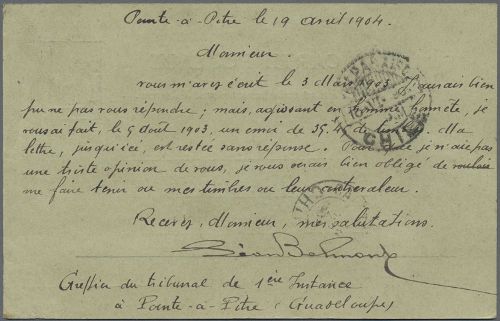 Pointe-à-Pitre le 19 avril 1904.
Monsieur.
vous m'avez écrit le 3 Mars 1903. J'aurais bien
pu ne pas vous répondre; mais, agissant en homme honnête, je
vous ai fait, le 5 août 1903, un envoi de 35,4 de timbres. Ma
lettre, jusqu'ici, est restée sans réponse. Pour que je n'aie pas
une triste opinion de vous, je vous serais bien obligé de vouloir
me faire tenir ou mes timbres ou leur contrevaleur.
Recevez, Monsieur, mes salutations.
Greffier du tribunal de 1ère Instance
à Pointe-à-Pitre (Guadeloupe)